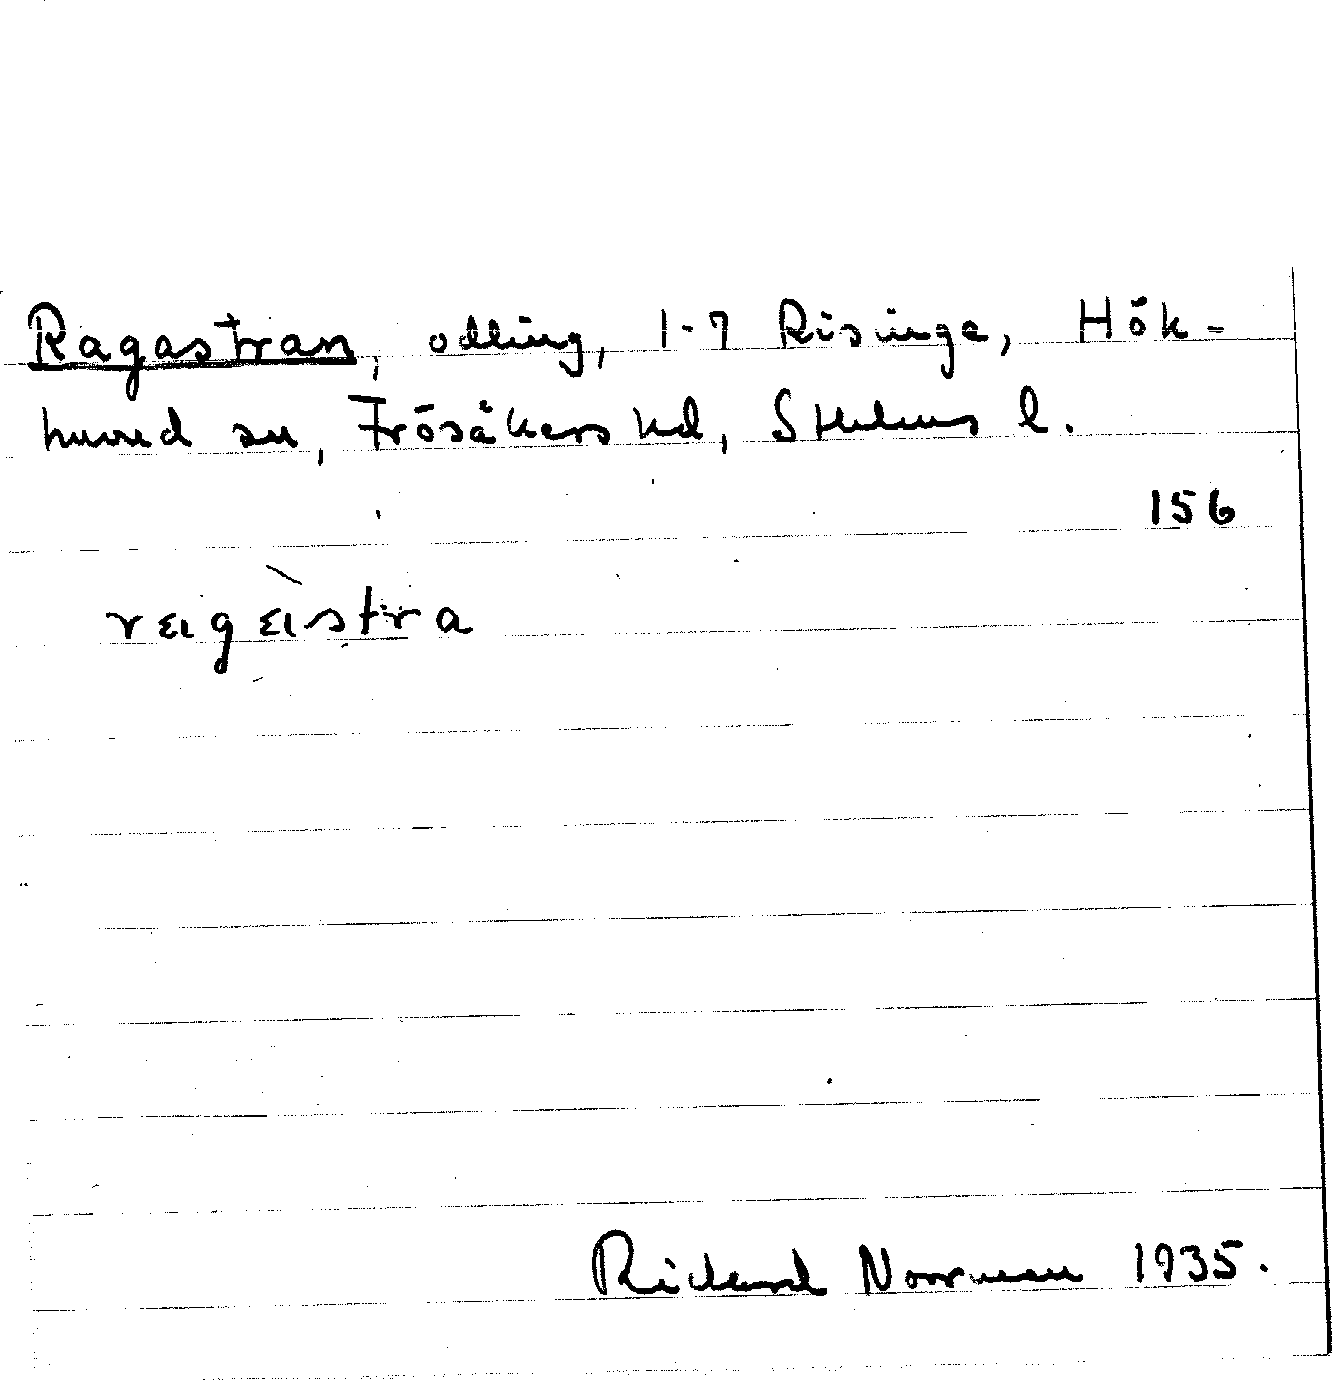 Ragastran, odling, 1-7 Risinge, Hök-
huvud sn, Frösåkers hd, Sthlms l.
156
Richard Norrman 1935.